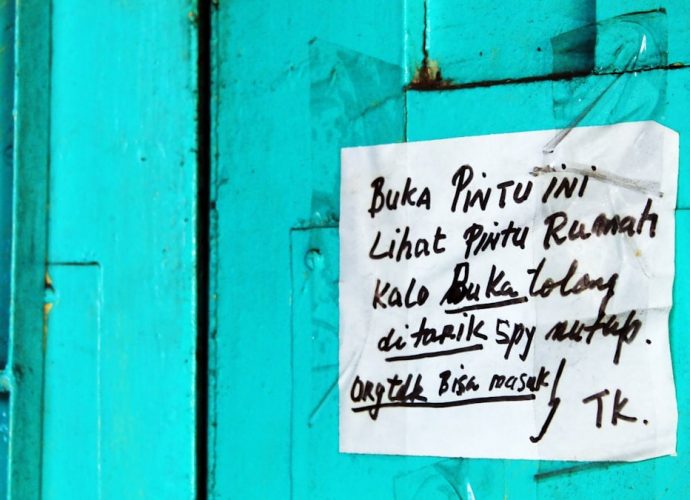 BUKA PINTU INI
Lihat PINTU Rumah
KALO BUKA tolong
ditarik spy nutup.
ORG tdk BISA masuk
TK.